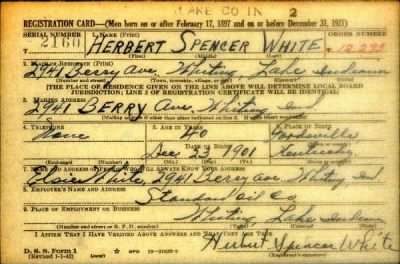 LAKE CO IN 2
REGISTRATION CARD—(Men born on or after February 17, 1897 and on or before December 31, 1921)
SERIAL NUMBER 1. NAME (Print) ORDER NUMBER
2160 HERBERT SPENCER WHITE
(First) (Middle) (Last)
2. PLACE OF RESIDENCE (Print)
2941 Berry Ave, Whiting, Lake Indiana
(Number and street) (Town, township, village, or city) (County) (State)
[THE PLACE OF RESIDENCE GIVEN ON THE LINE ABOVE WILL DETERMINE LOCAL BOARD
JURISDICTION; LINE 2 OF REGISTRATION CERTIFICATE WILL BE IDENTICAL]
3. MAILING ADDRESS
2941 BERRY Ave. Whiting Ind
[Mailing address if other than place indicated on line 2. If same insert word same]
4. TELEPHONE 5. AGE IN YEARS 6. PLACE OF BIRTH
None 40
DATE OF BIRTH
Dec 23 1901 Kentucky
(Exchange) (Number) (Mo.) (Day) (Yr.) (State or country)
7. NAME AND ADDRESS OF PERSON WHO WILL ALWAYS KNOW YOUR ADDRESS
White, 2941 Berry ave. Whiting Ind
8. EMPLOYER'S NAME AND ADDRESS
Standard Oil Co
9. PLACE OF EMPLOYMENT OR BUSINESS
Whiting Lake Indiana
(Number and street or R. F. D. number) (Town) (County) (State)
I AFFIRM THAT I HAVE VERIFIED ABOVE ANSWERS AND THAT THEY ARE TRUE.
D. S. S. Form 1
(Revised 1-1-42) (over)
Herbert Spencer White
(Registrant's signature)